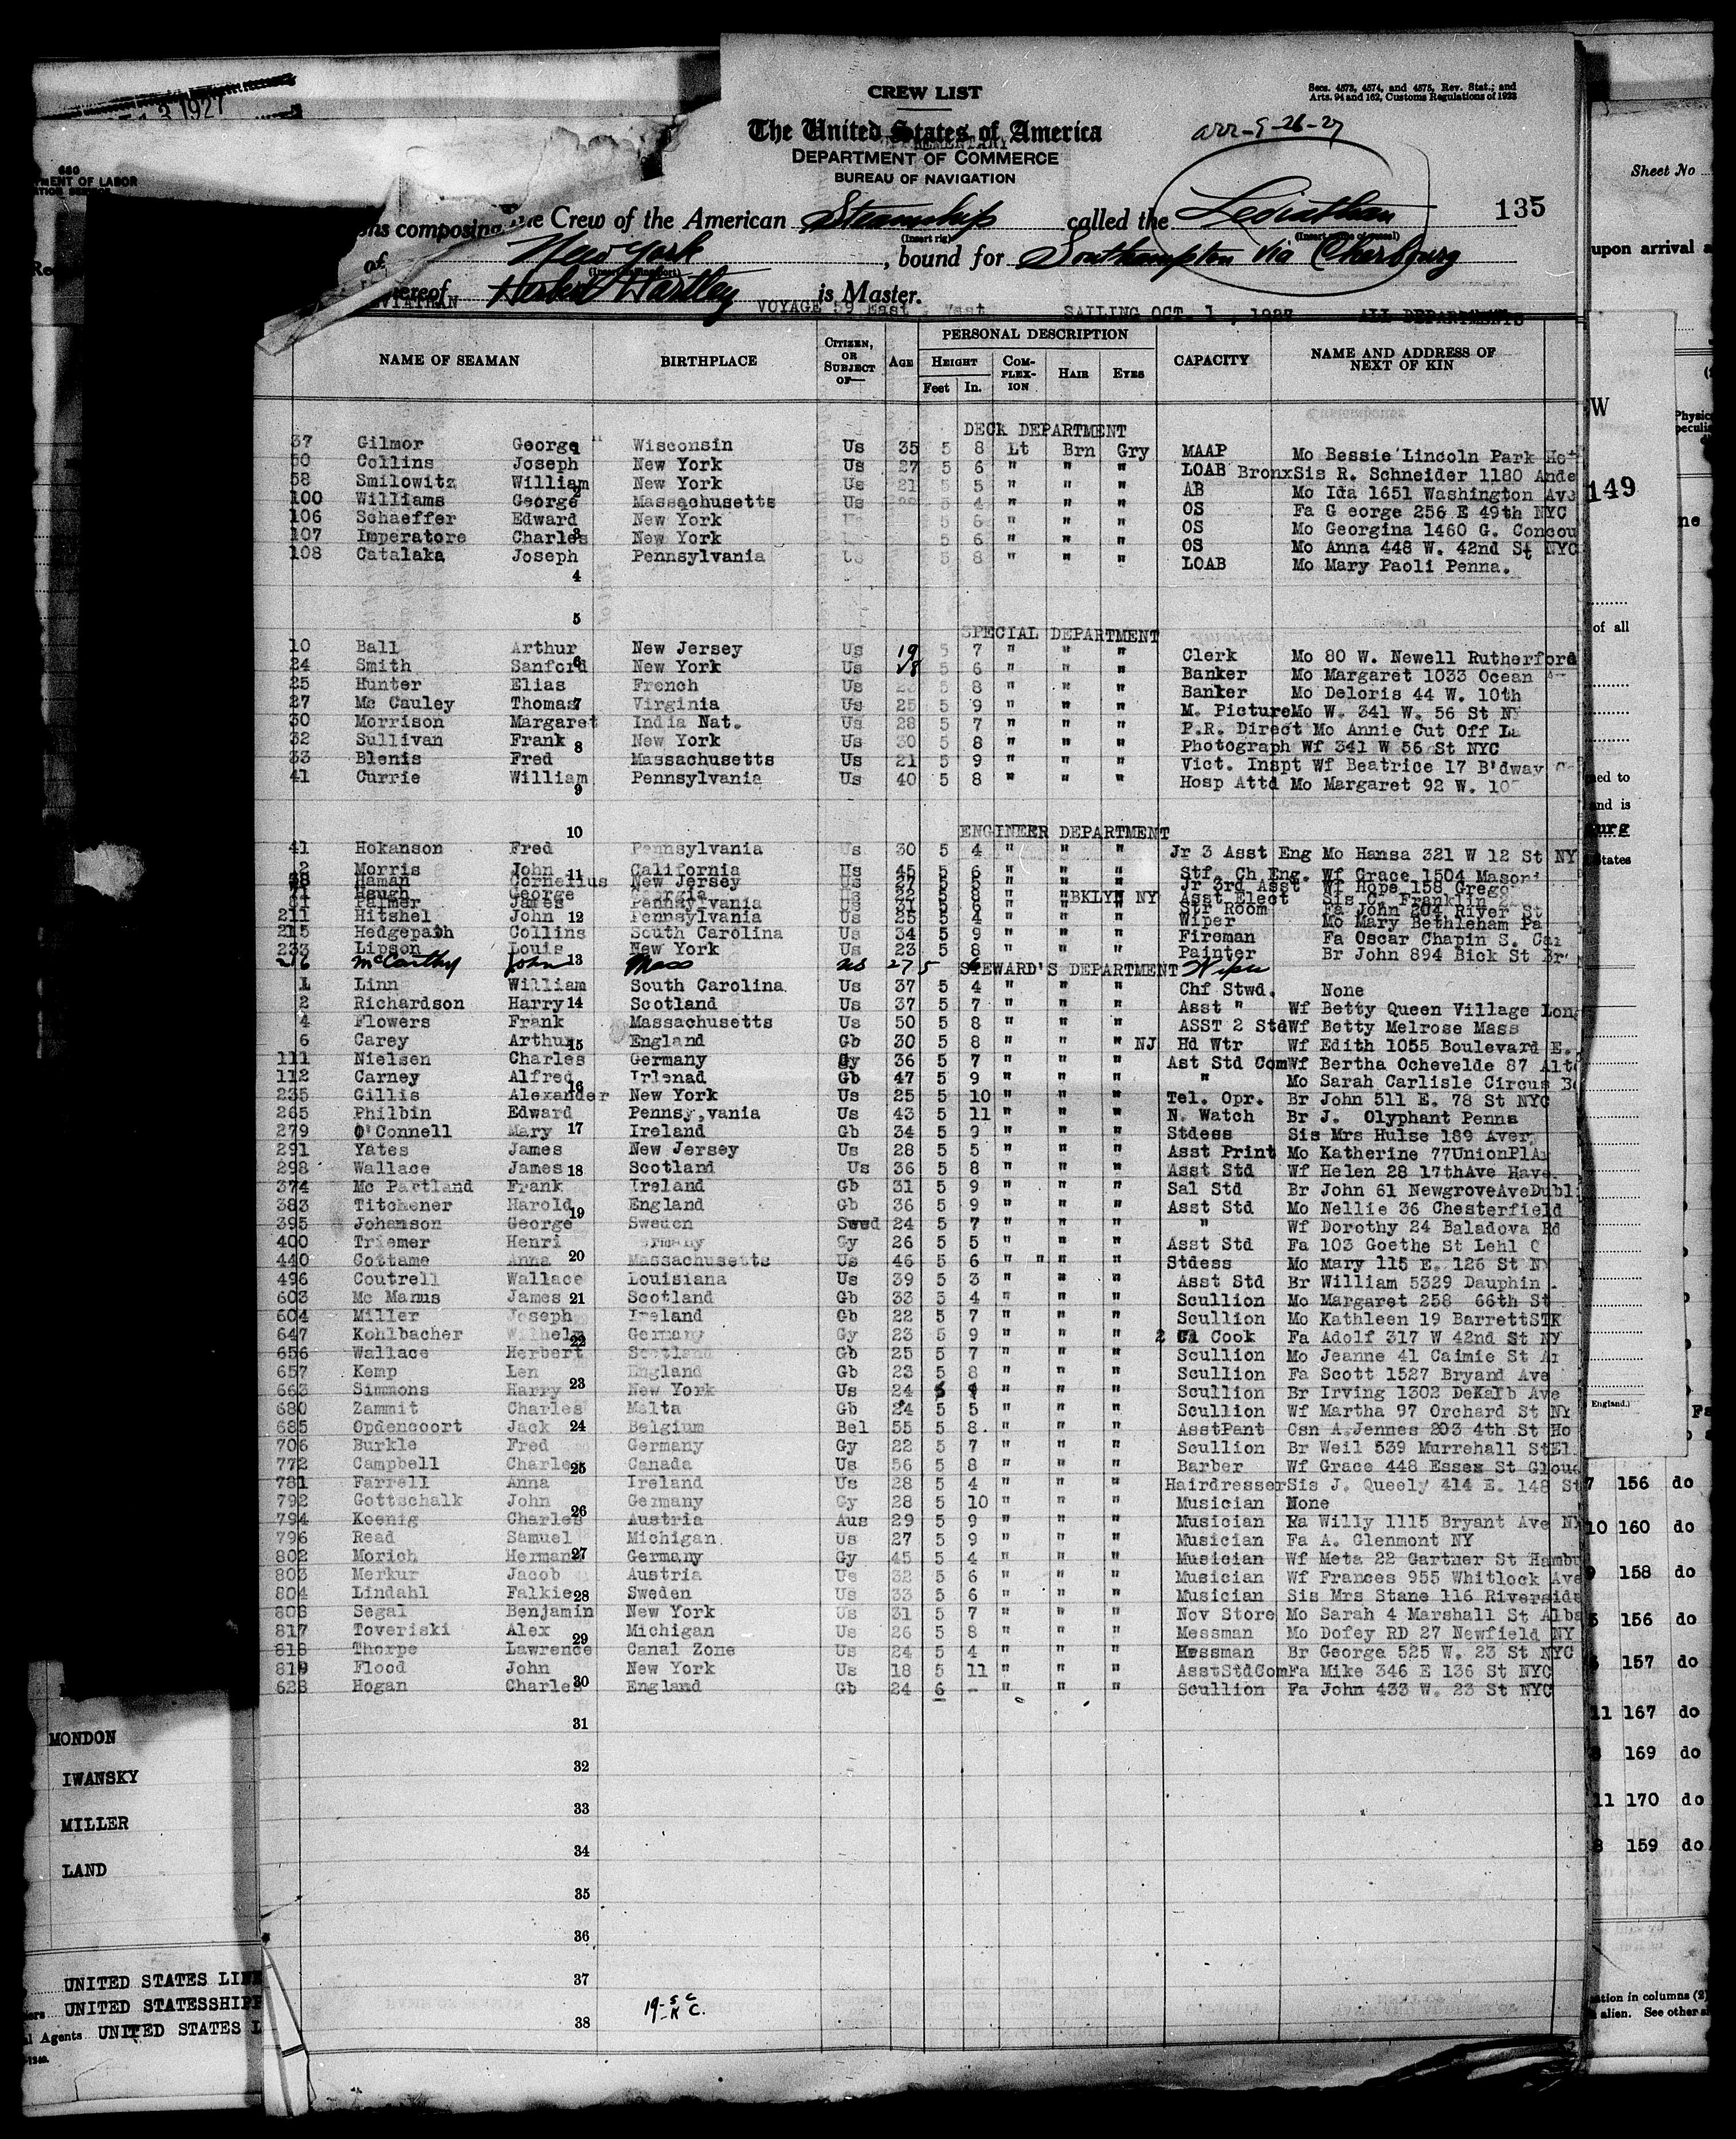 3 1927
CREW LIST
Secs. 4573, 4574, and 4575, Rev. Stat.; and
Arts. 94 and 162, Customs Regulations of 1923
The United States of America
arr-9-26-27
DEPARTMENT OF COMMERCE
BUREAU OF NAVIGATION
Sheet No
680
MENT OF LABOR
ons composing the Crew of the American Steamship called the Leviathan 135
(Insert rig)
of New York, bound for Southampton Via Cherbourg
upon arrival a
hereof Herbert Hartley is Master.
VIATHAN VOYAGE 59 East West SAILING OCT. 1, 1927 ALL DEPARTMENTS
NAME OF SEAMAN BIRTHPLACE CITIZEN, OR SUBJECT OF— AGE PERSONAL DESCRIPTION HEIGHT Feet In. COMPLEXION HAIR EYES CAPACITY NAME AND ADDRESS OF NEXT OF KIN
DECK DEPARTMENT
37 Gilmor George Wisconsin Us 35 5 8 Lt Brn Gry MAAP Mo Bessie Lincoln Park
50 Collins Joseph New York Us 27 5 6 " " " LOAB Bronx Sis R. Schneider 1180 Ande
58 Smilowitz William New York Us 21 5 5 " " " AB Mo Ida 1651 Washington Ave
100 Williams George Massachusetts Us 5 4 " " " OS Fa G eorge 256 E 49th NYC
106 Schaeffer Edward New York 5 6 " " " OS Mo Georgina 1460 G. Concou
107 Imperatore Charles New York 5 6 " " " OS Mo Anna 448 W. 42nd St NYC
108 Catalaka Joseph Pennsylvania 5 8 " " " LOAB Mo Mary Paoli Penna.
SPECIAL DEPARTMENT
10 Ball Arthur New Jersey Us 19 5 7 " " " Clerk Mo 80 W. Newell Rutherford
24 Smith Sanford New York Us 5 6 " " " Banker Mo Margaret 1033 Ocean
25 Hunter Elias French Us 5 8 " " " Banker Mo Deloris 44 W. 10th
27 Mc Cauley Thomas Virginia Us 25 5 9 " " " M. Picture Mo W. 341 W. 56 St NY
30 Morrison Margaret India Nat. Us 28 5 7 " " " P.R. Direct Mo Annie Cut Off La
32 Sullivan Frank New York Us 30 5 8 " " " Photograph Wf 341 W 56 St NYC
33 Blenis Fred Massachusetts Us 21 5 9 " " " Vict. Inspt Wf Beatrice 17 B'dway
41 Currie William Pennsylvania Us 40 5 8 " " " Hosp Attd Mo Margaret 92 W.
ENGINEER DEPARTMENT
41 Hokanson Fred Pennsylvania Us 30 5 4 " " " Jr 3 Asst Eng Mo Hansa 321 W 12 St NY
2 Morris John California Us 45 5 6 " " " Stf. Ch Eng. Wf Grace 1504 Mason
Haman Cornelius New Jersey Us Jr 3rd Asst Wf Hope 158 Grego
Haugh George Georgia BKLYN NY Asst Elect Sis C. Franklin
81 Palmer James Pennsylvania Us 31 5 6 " " " Str Room Fa John 204 River St
211 Hitshel John Pennsylvania Us 25 5 4 " " " Wiper Mo Mary Bethleham Pa
215 Hedgepath Collins South Carolina Us 34 5 9 " " " Fireman Fa Oscar Chapin S. Car
233 Lipson Louis New York Us 23 5 8 " " " Painter Br John 894 Bick St Br
McCarthy John Mass us 27 5 Wiper
STEWARD'S DEPARTMENT
1 Linn William South Carolina Us 37 5 4 " " " Chf Stwd. None
2 Richardson Harry Scotland Us 37 5 7 " " " Asst " Wf Betty Queen Village Long
4 Flowers Frank Massachusetts Us 50 5 8 " " " ASST 2 Std Wf Betty Melrose Mass
6 Carey Arthur England Gb 30 5 8 " " " NJ Hd Wtr Wf Edith 1055 Boulevard E.
111 Nielsen Charles Germany Gy 36 5 7 " " " Ast Std Com Wf Bertha Ochevelde 87 Alto
112 Carney Alfred Irlenad Gb 47 5 9 " " " " Mo Sarah Carlisle Circus
235 Gillis Alexander New York Us 25 5 10 " " " Tel. Opr. Br John 511 E. 78 St NYC
265 Philbin Edward Pennsy,vania Us 43 5 11 " " " N. Watch Br J. Olyphant Penna
279 O'Connell Mary Ireland Gb 34 5 9 " " " Stdess Sis Mrs Hulse 189 Aver
291 Yates James New Jersey Us 28 5 5 " " " Asst Print Mo Katherine 77UnionPlA
298 Wallace James Scotland Us 36 5 8 " " " Asst Std Wf Helen 28 17thAve Have
374 Mc Partland Frank Ireland Gb 31 5 9 " " " Sal Std Br John 61 NewgroveAveDubli
383 Titchener Harold England Gb 36 5 9 " " " Asst Std Mo Nellie 36 Chesterfield
395 Johanson George Sweden Swed 24 5 7 " " " " Wf Dorothy 24 Baladova Rd
400 Triemer Henri Germany Gy 26 5 5 " " " Asst Std Fa 103 Goethe St Lehl
440 Cottame Anna Massachusetts Us 46 5 6 " " " " Stdess Mo Mary 115 E. 126 St NY
496 Coutrell Wallace Louisiana Us 39 5 3 " " " Asst Std Br William 5329 Dauphin
603 Mc Manus James Scotland Gb 33 5 4 " " " Scullion Mo Margaret 258 66th St
604 Miller Joseph Ireland Gb 22 5 7 " " " Scullion Mo Kathleen 19 BarrettSTK
647 Kohlbacher Wilhelm Germany Gy 23 5 9 " " " 2 Cl Cook Fa Adolf 317 W 42nd St NY
656 Wallace Herbert Scotland Gb 25 5 7 " " " Scullion Mo Jeanne 41 Caimie St
657 Kemp Len England Gb 23 5 8 " " " Scullion Fa Scott 1527 Bryand Ave
663 Simmons Harry New York Us 24 5 " " " Scullion Br Irving 1302 DeKalb Ave
680 Zammit Charles Malta Gb 24 5 5 " " " Scullion Wf Martha 97 Orchard St NY
685 Opdencoort Jack Belgium Bel 55 5 8 " " " AsstPant Csn A.Jennes 203 4th St Ho
706 Burkle Fred Germany Gy 22 5 7 " " " Scullion Br Weil 539 Murrehall StEl
772 Campbell Charles Canada Us 56 5 8 " " " Barber Wf Grace 448 Essex St Glouc
781 Farrell Anna Ireland Us 28 5 4 " " " Hairdresser Sis J. Queely 414 E. 148 St
792 Gottschalk John Germany Gy 28 5 10 " " " Musician None
794 Koenig Charles Austria Aus 29 5 9 " " " Musician Fa Willy 1115 Bryant Ave NY
796 Read Samuel Michigan Us 27 5 9 " " " Musician Fa A. Glenmont NY
802 Morich Hermann Germany Gy 45 5 4 " " " Musician Wf Meta 22 Gartner St Hambu
803 Merkur Jacob Austria Us 32 5 6 " " " Musician Wf Frances 955 Whitlock Ave
804 Lindahl Falkie Sweden Us 33 5 6 " " " Musician Sis Mrs Stane 116 Riverside
808 Segal Benjamin New York Us 31 5 7 " " " Nov Store Mo Sarah 4 Marshall St Alba
817 Toveriski Alex Michigan Us 26 5 8 " " " Messman Mo Dofey RD 27 Newfield NY
818 Thorpe Lawrence Canal Zone Us 24 5 4 " " " Messman Br George 525 W. 23 St NYC
819 Flood John New York Us 18 5 11 " " " AsstStdCom Fa Mike 346 E 136 St NYC
628 Hogan Charles England Gb 24 6 - " " " Scullion Fa John 433 W. 23 St NYC
1
2
3
4
5
6
7
8
9
10
11
12
13
14
15
16
17
18
19
20
21
22
23
24
25
26
27
28
29
30
31
32
33
34
35
36
37
38
MONDON
IWANSKY
MILLER
LAND
UNITED STATES LINE
UNITED STATESSHIPP
l Agents UNITED STATES L
W
149
of all
and is
States
England.)
7 156 do
10 160 do
9 158 do
5 156 do
157 do
11 167 do
169 do
11 170 do
8 159 do
ation in columns (2)
alien. See other s